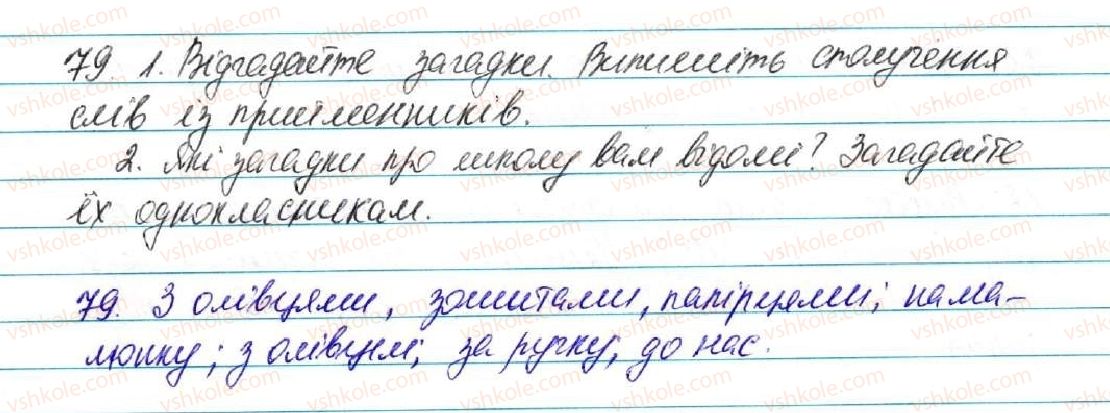 79. 1. Відгадайте загадки. Випишіть сполучення
слів із прийменників.
2. Які загадки про школу вам відомі? Загадайте
їх однокласникам.
79. З олівцями, зошитами, папірцями; на ма-
люнку; з олівцем; за ручку; до нас.